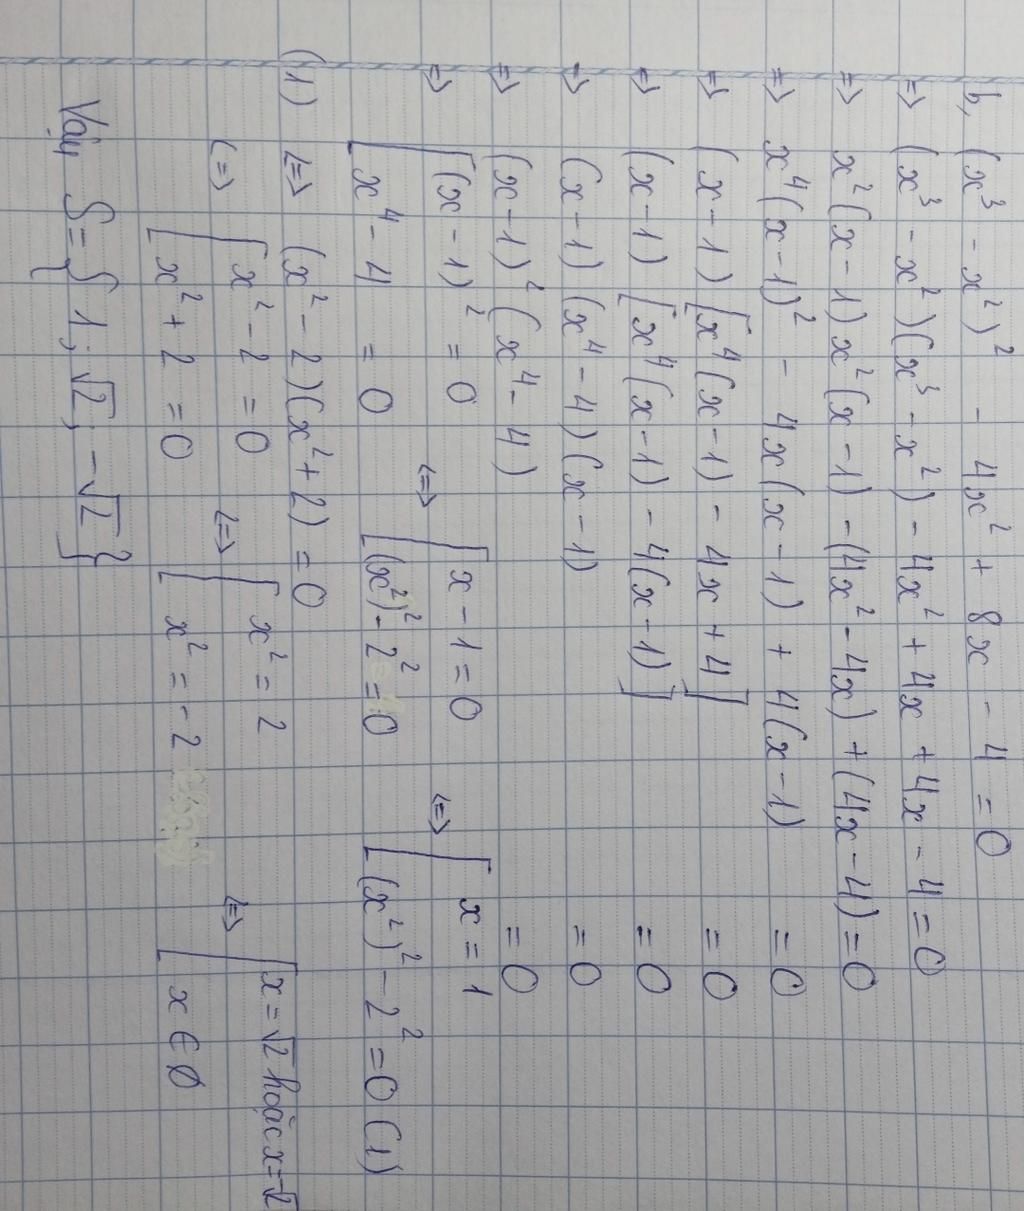 b, (x³ - x²)² - 4x² + 8x - 4 = 0
=> (x³ - x²)(x³ - x²) - 4x² + 4x + 4x - 4 = 0
=> x²(x - 1)x²(x - 1) - (4x² - 4x) + (4x - 4) = 0
=> x⁴(x - 1)² - 4x(x - 1) + 4(x - 1) = 0
=> (x - 1)[x⁴(x - 1) - 4x + 4] = 0
=> (x - 1)[x⁴(x - 1) - 4(x - 1)] = 0
=> (x - 1)(x⁴ - 4)(x - 1) = 0
=> (x - 1)²(x⁴ - 4) = 0
=> [(x - 1)² = 0 <=> [x - 1 = 0 <=> [x = 1
[x⁴ - 4 = 0 [(x²)² - 2² = 0 [(x²)² - 2² = 0 (1)
(1) <=> (x² - 2)(x² + 2) = 0
<=> [x² - 2 = 0 <=> [x² = 2 <=> [x = √2 hoặc x = √2
[x² + 2 = 0 [x² = -2 [x ∈ ∅
Vậy S = {1; √2; -√2}